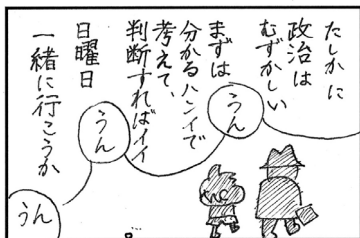 たしかに
政治は
むずかしい
うん
まずは
分かるハンイで
考えて、
判断すればイイ
うん
日曜日
一緒に行こうか
うん